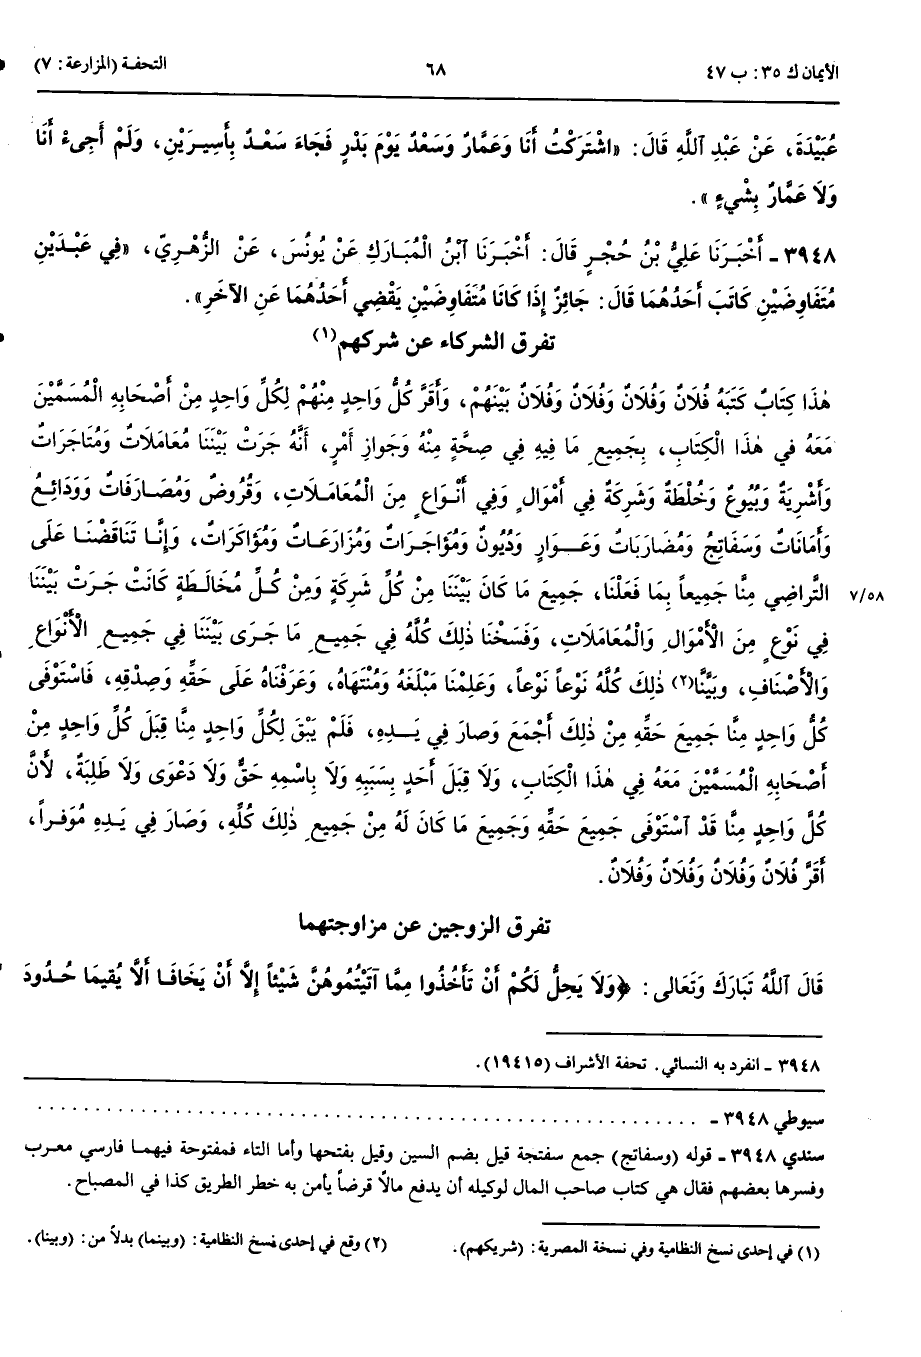 الأيمان ك ٣٥: ب ٤٧ ٦٨ التحفة (المزارعة: ٧)
عُبَيْدَةَ، عَنْ عَبْدِ ٱللَّهِ قَالَ: «اشْتَرَكْتُ أَنَا وَعَمَّارٌ وَسَعْدٌ يَوْمَ بَدْرٍ فَجَاءَ سَعْدٌ بِأَسِيرَيْنِ، وَلَمْ أَجِىءْ أَنَا
وَلَا عَمَّارٌ بِشَيْءٍ».
٣٩٤٨ ـ أَخْبَرَنَا عَلِيُّ بْنُ حُجْرٍ قَالَ: أَخْبَرَنَا ٱبْنُ الْمُبَارَكِ عَنْ يُونُسَ، عَنْ الزُّهْرِيِّ، «فِي عَبْدَيْنِ
مُتَفَاوِضَيْنِ كَاتَبَ أَحَدُهُمَا قَالَ: جَائِزٌ إِذَا كَانَا مُتَفَاوِضَيْنِ يَقْضِي أَحَدُهُمَا عَنِ الآخَرِ».
تفرق الشركاء عن شركهم(١)
هٰذَا كِتَابٌ كَتَبَهُ فُلَانٌ وَفُلَانٌ وَفُلَانٌ وَفُلَانٌ بَيْنَهُمْ، وَأَقَرَّ كُلُّ وَاحِدٍ مِنْهُمْ لِكُلِّ وَاحِدٍ مِنْ أَصْحَابِهِ الْمُسَمَّيْنَ
مَعَهُ في هٰذَا الْكِتَابِ، بِجَمِيعِ مَا فِيهِ فِي صِحَّةٍ مِنْهُ وَجَوازِ أَمْرٍ، أَنَّهُ جَرَتْ بَيْنَنَا مُعَامَلَاتٌ وَمُتَاجَرَاتٌ
وَأَشْرِيَةٌ وَبُيُوعٌ وَخُلْطَةٌ وَشَرِكَةٌ فِي أَمْوَالٍ وَفِي أَنْوَاعٍ مِنَ الْمُعَامَلَاتِ، وَقُرُوضٌ وَمُصَارَفَاتٌ وَوَدَائِعُ
وَأَمَانَاتٌ وَسَفَاتِجُ وَمُضَارَبَاتٌ وَعَوَارٍ وَدُيُونٌ وَمُؤَاجَرَاتٌ وَمُزَارَعَاتٌ وَمُؤَاكَرَاتٌ، وَإِنَّا تَنَاقَضْنَا عَلَى
التَّرَاضِي مِنَّا جَمِيعاً بِمَا فَعَلْنَا، جَمِيعَ مَا كَانَ بَيْنَنَا مِنْ كُلِّ شَرِكَةٍ وَمِنْ كُلِّ مُخَالَطَةٍ كَانَتْ جَرَتْ بَيْنَنَا ٧/٥٨
فِي نَوْعٍ مِنَ الْأَمْوَالِ وَالْمُعَامَلَاتِ، وَفَسَخْنَا ذٰلِكَ كُلَّهُ فِي جَمِيعِ مَا جَرَى بَيْنَنَا فِي جَمِيعِ الْأَنْوَاعِ
وَالْأَصْنَافِ، وبَيَّنَّا(٢) ذٰلِكَ كُلَّهُ نَوْعاً نَوْعاً، وَعَلِمْنَا مَبْلَغَهُ وَمُنْتَهَاهُ، وَعَرَفْنَاهُ عَلَى حَقِّهِ وَصِدْقِهِ، فَاسْتَوْفَى
كُلُّ وَاحِدٍ مِنَّا جَمِيعَ حَقِّهِ مِنْ ذٰلِكَ أَجْمَعَ وَصارَ فِي يَدِهِ، فَلَمْ يَبْقَ لِكُلِّ وَاحِدٍ مِنَّا قِبَلَ كُلِّ وَاحِدٍ مِنْ
أَصْحَابِهِ الْمُسَمَّيْنَ مَعَهُ فِي هٰذَا الْكِتَابِ، وَلَا قِبَلَ أَحَدٍ بِسَبَبِهِ وَلَا بِاسْمِهِ حَقٌّ وَلَا دَعْوَى وَلَا طَلِبَةٌ، لأَنَّ
كُلَّ وَاحِدٍ مِنَّا قَدْ ٱسْتَوْفَى جَمِيعَ حَقِّهِ وَجَمِيعَ مَا كَانَ لَهُ مِنْ جَمِيعِ ذٰلِكَ كُلِّهِ، وَصَارَ فِي يَدِهِ مُوَفَّراً،
أَقَرَّ فُلَانٌ وَفُلَانٌ وَفُلَانٌ وَفُلَانٌ.
تفرق الزوجين عن مزاوجتهما
قَالَ ٱللَّهُ تَبَارَكَ وَتَعَالى: ﴿وَلَا يَحِلُّ لَكُمْ أَنْ تَأْخُذُوا مِمَّا آتَيْتُمُوهُنَّ شَيْئاً إِلَّا أَنْ يَخَافَا أَلَّا يُقِيمَا حُدُودَ
٣٩٤٨ ـ انفرد به النسائي. تحفة الأشراف (١٩٤١٥).
سيوطي ٣٩٤٨ ـ . . . . . . . . . . . . . . . . . . . . . . . . . . . . . .
سندي ٣٩٤٨ ـ قوله (وسفاتج) جمع سفتجة قيل بضم السين وقيل بفتحها وأما التاء فمفتوحة فيهما فارسي معرب
وفسرها بعضهم فقال هي كتاب صاحب المال لوكيله أن يدفع مالاً قرضاً يأمن به خطر الطريق كذا في المصباح.
(١) في إحدى نسخ النظامية وفي نسخة المصرية: (شريكهم). (٢) وقع في إحدى نسخ النظامية: (وبينما) بدلاً من: (وبينا).